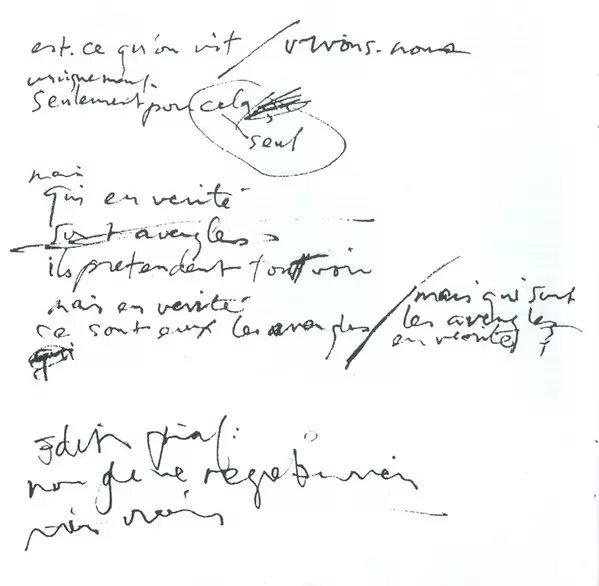 est-ce qu'on vit / vivons-nous
uniquement
seulement pour cela
seul
mais
qui en verité
sont aveugles
ils pretendent tout voir
mais en verité
ce sont eux les aveugles
qui
/ mais qui sont
les aveugles
en verité ?
Edith Piaf:
non je ne regrette rien
rien rien